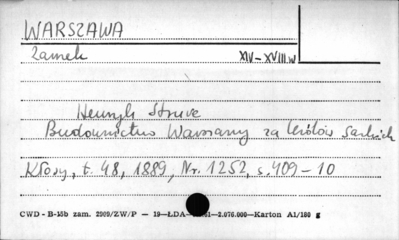 WARSZAWA
Zamek XIV-XVIII w
Henryk Struve
Budownictwo Warszawy za królów Saskich
Kłosy, t. 48, 1889, Nr. 1252, s. 409-10
CWD - B-15b zam. 2909/ZW/P — 19—ŁDA— 61—2.076.000—Karton A1/180 g